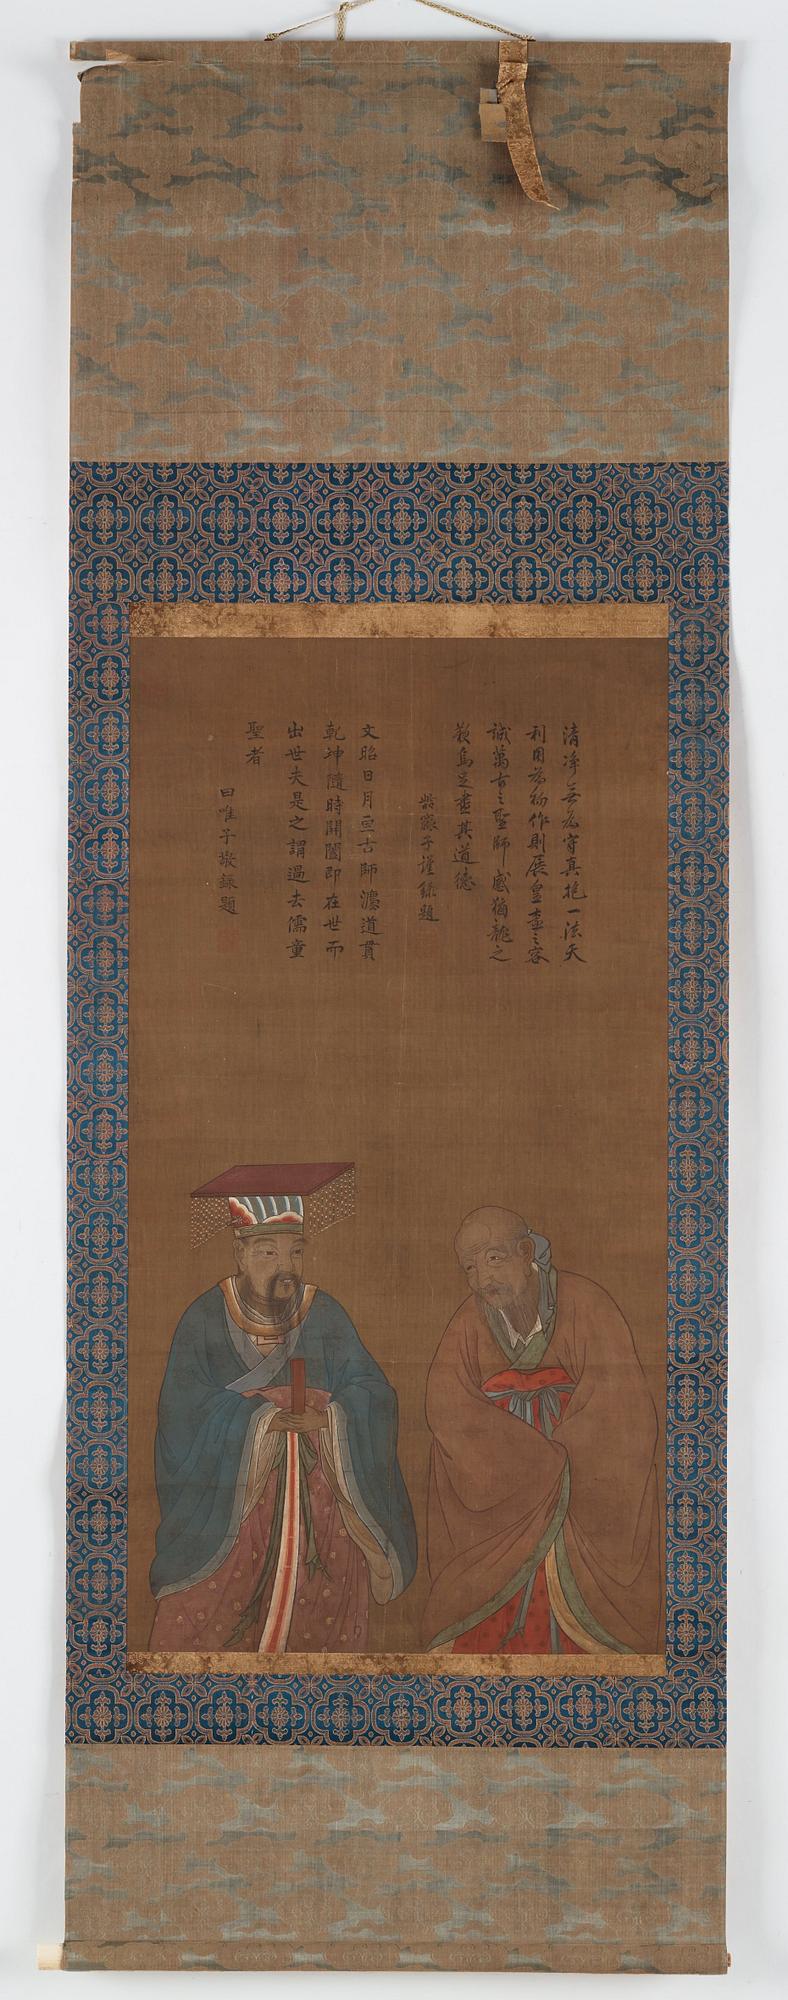 清淨無為守真抱一法天
利用為物作則展皇壹之容
誠萬古之聖師感猶龍之
歎烏足盡其道德
謹錄題
文昭日月亘古師濃道貫
乾坤隨時開闔即在世而
出世夫是之謂過去儒童
聖者
曰唯子敬錄題